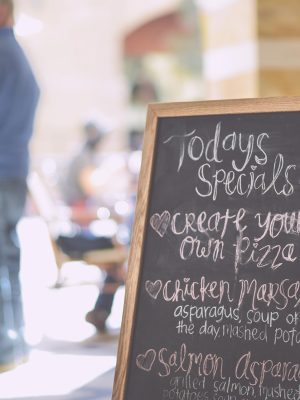 Todays
Specials
Create your
own pizza
Chicken Marsa
asparagus, soup of
the day, mashed pota
Salmon Asparag
grilled salmon, mashed
potatoes, soup